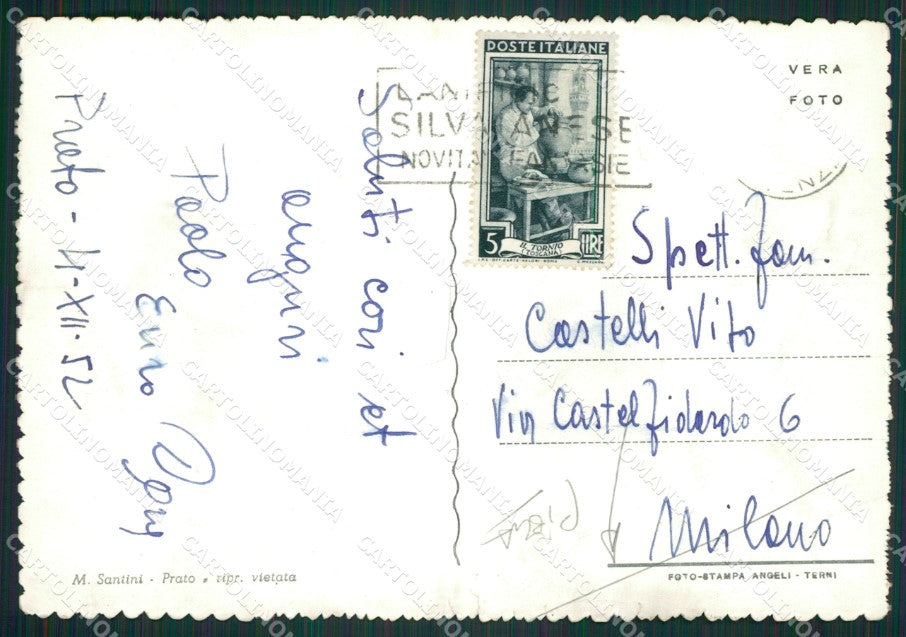 Prato - 4-XII-52
Saluti cari et
auguri
Paolo
Enzo
POSTE ITALIANE
5 LIRE
IL TORNIO
(TOSCANA)
SILVA
NOVITÀ
VERA
FOTO
Spett. Fam.
Castelli Vito
Via Castelfidardo 6
Milano
M. Santini - Prato - ripr. vietata
FOTO-STAMPA ANGELI - TERNI
CARTOLINOMANIA